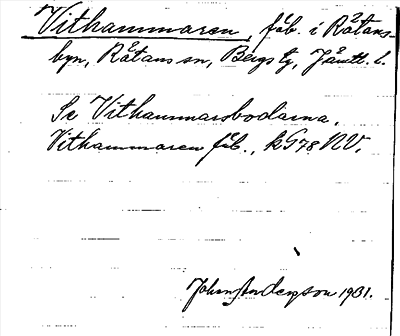 Vithammaren, fäb. i Råtans-
byn, Råtans sn, Bergs tg, Jämtl. l.
Se Vithammarsbodarna.
Vithammaren fäb., k G78 NV.
Johan Anderson 1931.